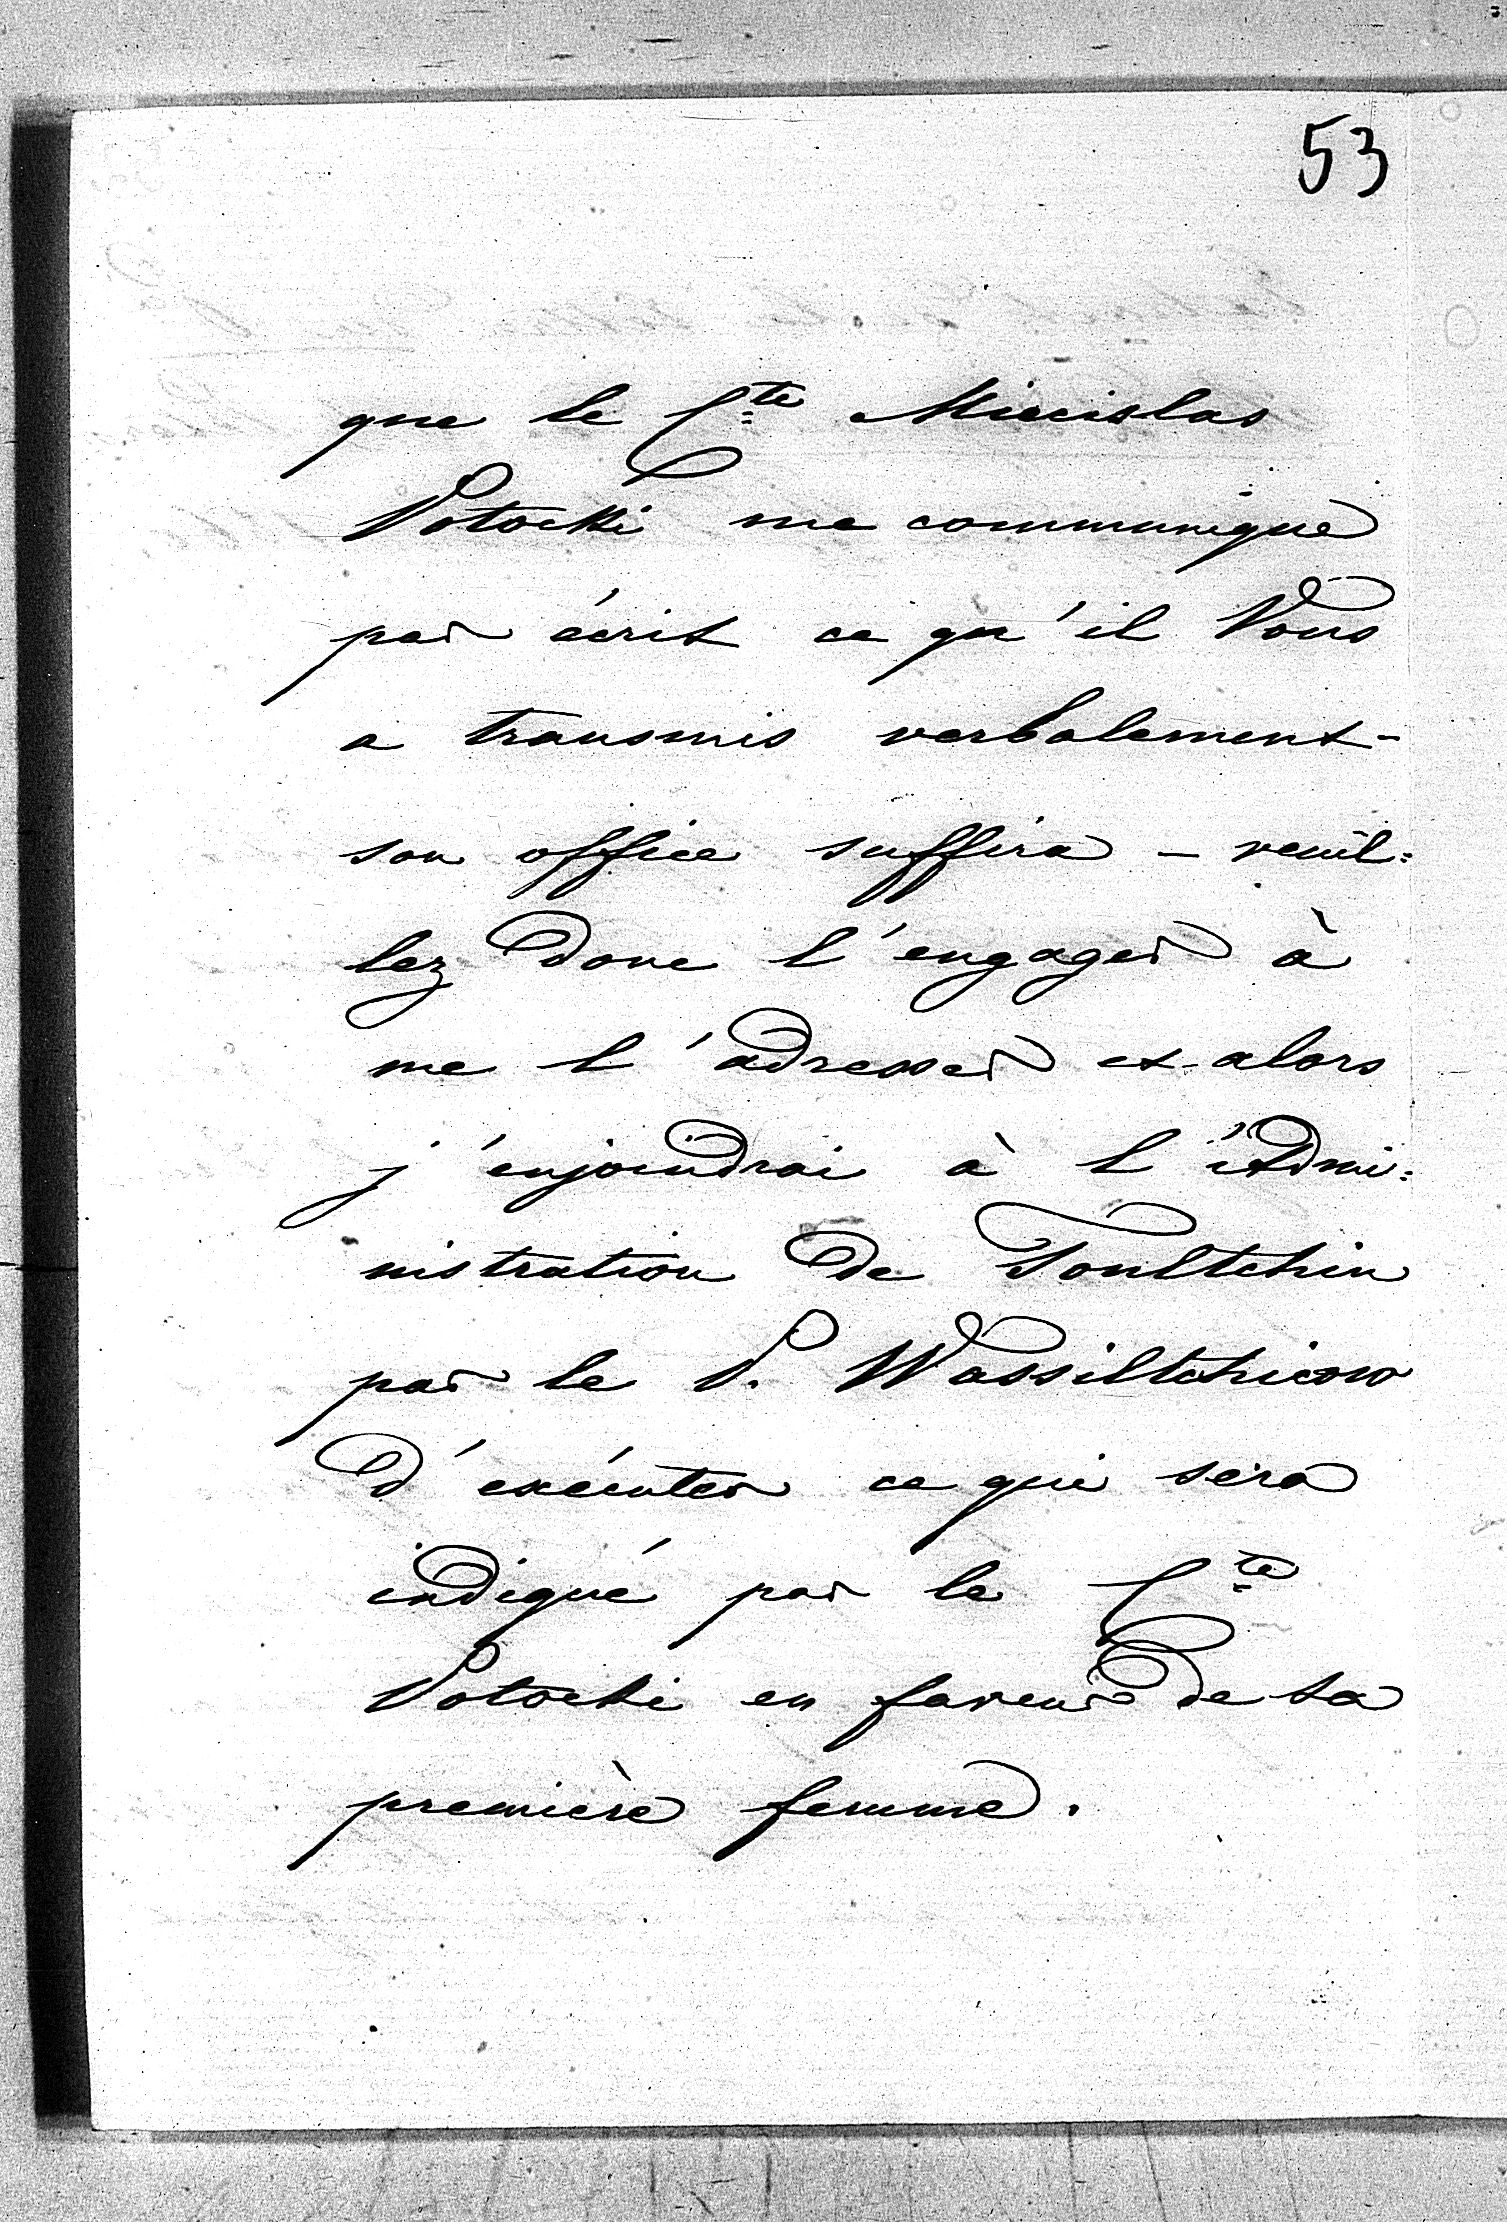 53
que le C^te Miecislas
Potocki me communique
par écrit ce qu'il Vous
a transmis verbalement-
son office suffira – veuil:
lez donc l'engager à
me l'adresser et alors
j'enjoindrai à l'Admi:
nistration de Toultchin
par le P. Wassiltchicow
d'exécuter ce qui sera
indiqué par le C^te
Potocki en faveur de sa
première femme.